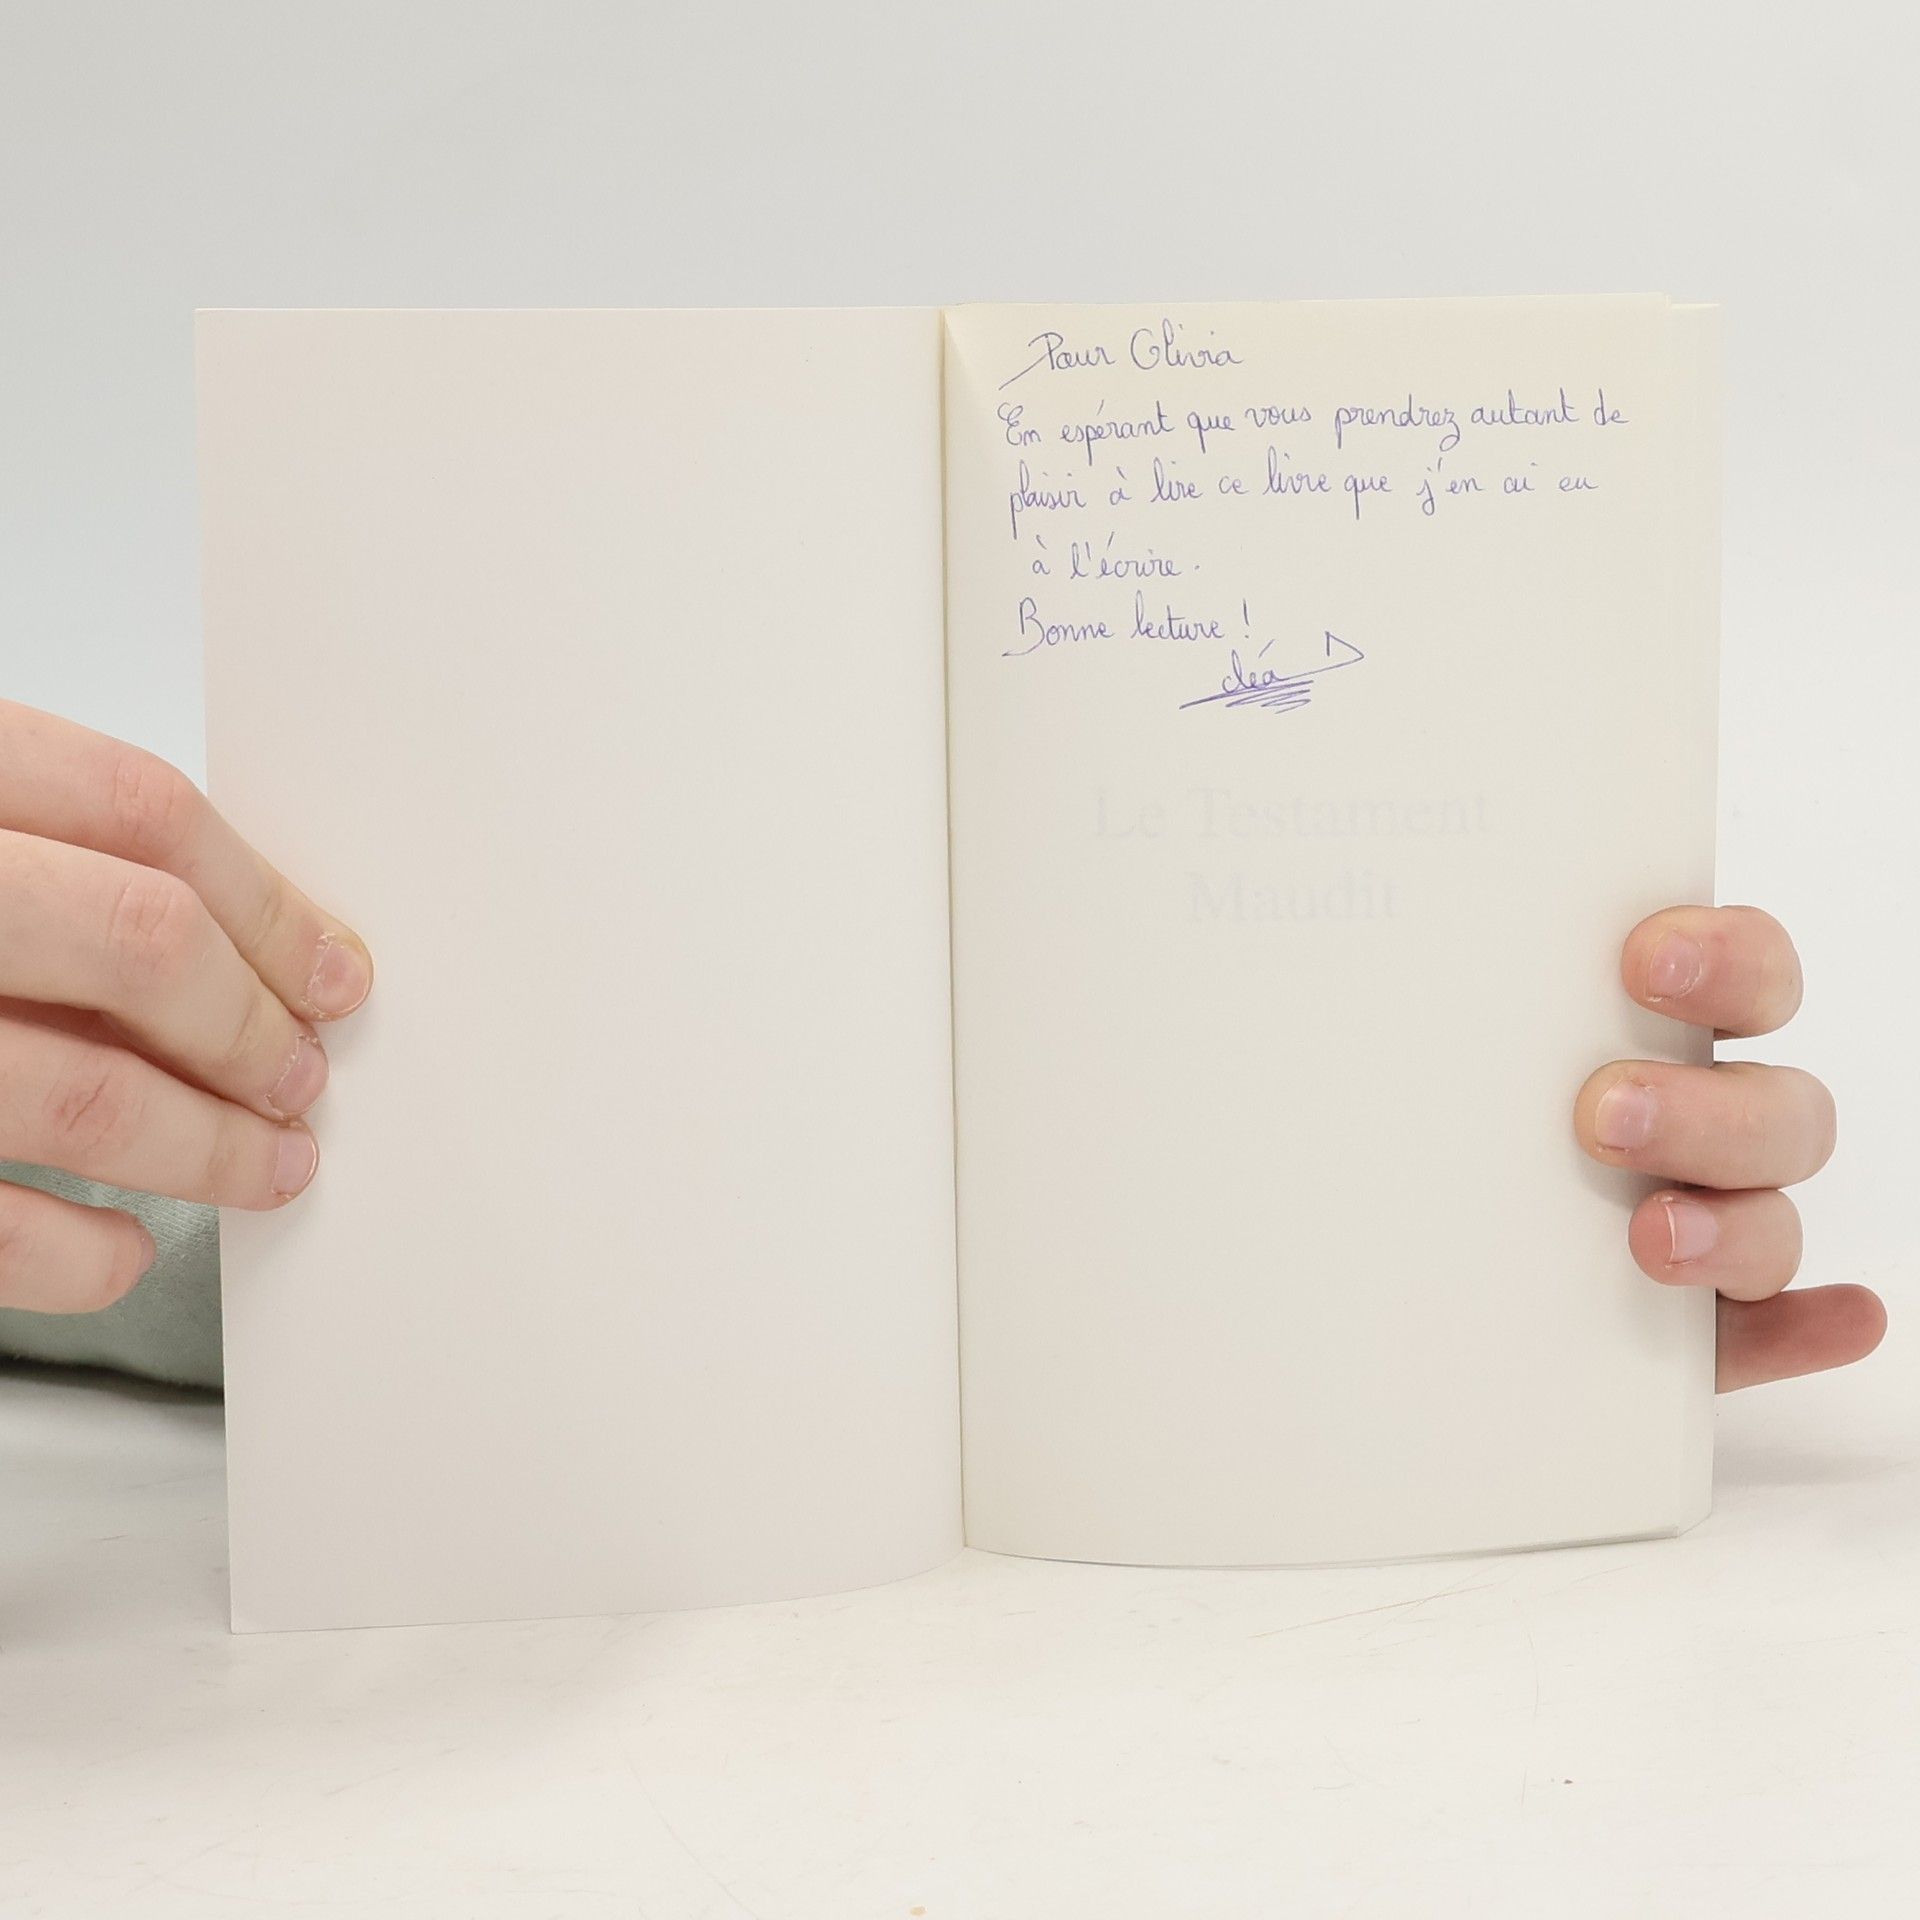 Pour Olivia
En espérant que vous prendrez autant de
plaisir à lire ce livre que j'en ai eu
à l'écrire.
Bonne lecture !
cléa
Le Testament
Maudit